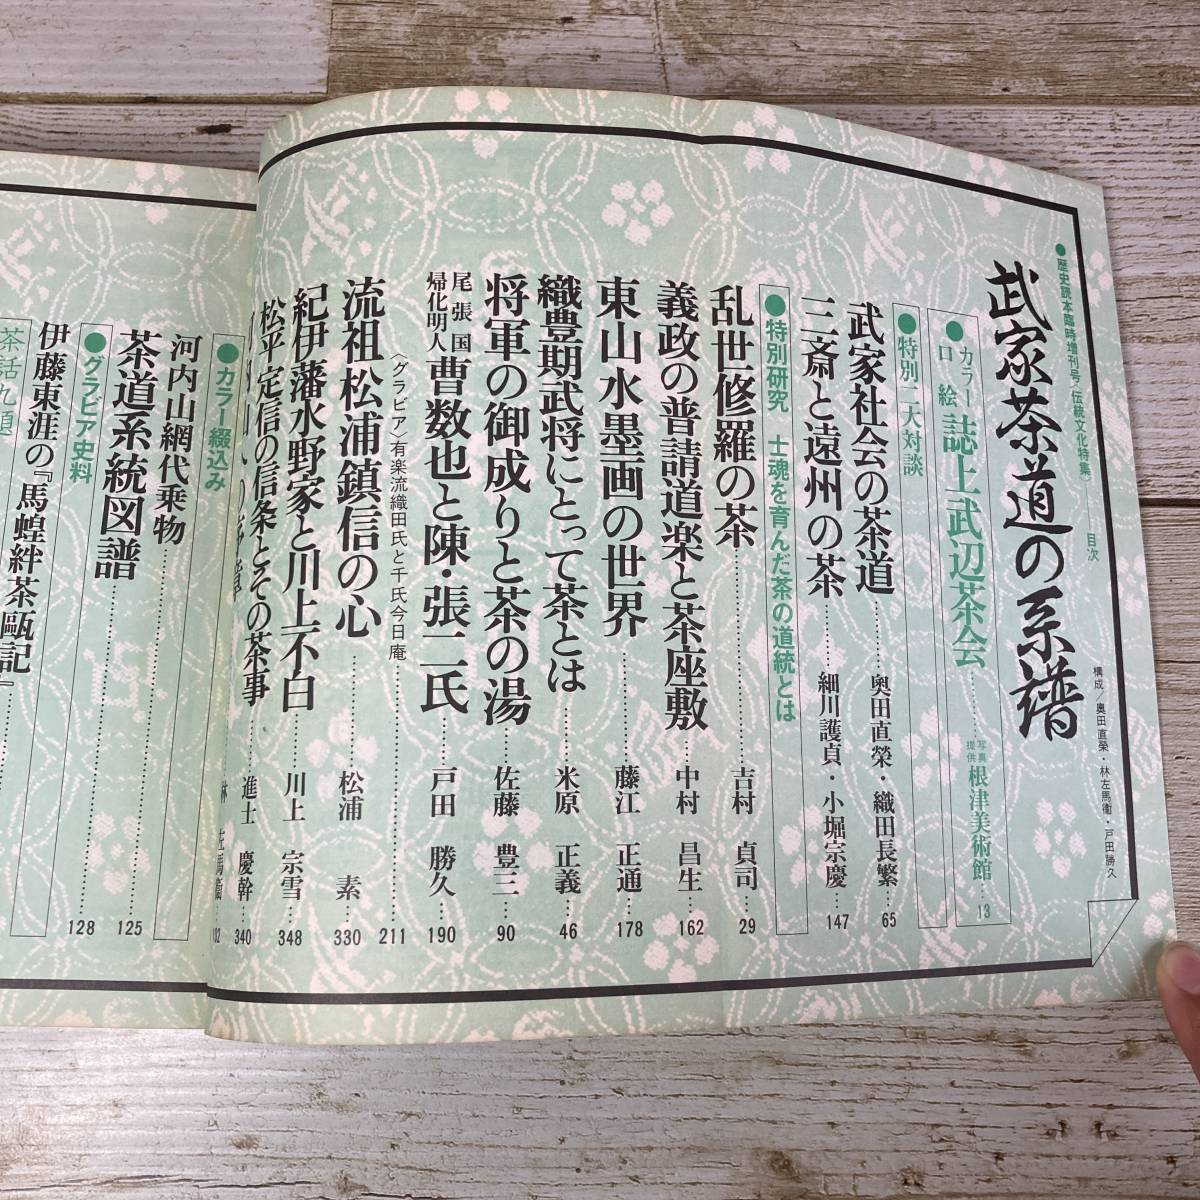 ●歴史読本臨時増刊号〈伝統文化特集〉
目次
武家茶道の系譜
構成／奥田直榮・林左馬衛・戸田勝久
●カラー口絵 誌上武辺茶会……写真提供 根津美術館…13
●特別二大対談
武家社会の茶道……奥田直榮・織田長繁…65
三斎と遠州の茶……細川護貞・小堀宗慶…147
●特別研究 士魂を育んだ茶の道統とは
乱世修羅の茶……吉村 貞司…29
義政の普請道楽と茶座敷……中村 昌生…162
東山水墨画の世界……藤江 正通…178
織豊期武将にとって茶とは……米原 正義…46
将軍の御成りと茶の湯……佐藤 豊三…90
尾張国帰化明人 曹数也と陳・張二氏……戸田 勝久…190
〈グラビア〉有楽流織田氏と千氏今日庵……211
流祖松浦鎮信の心……松浦 素…330
紀伊藩水野家と川上不白……川上 宗雪…348
松平定信の信条とその茶事……進士 慶幹…340
●カラー綴込み
河内山網代乗物……
茶道系統図譜……125
●グラビア史料
伊藤東涯の『馬蝗絆茶甌記』……128